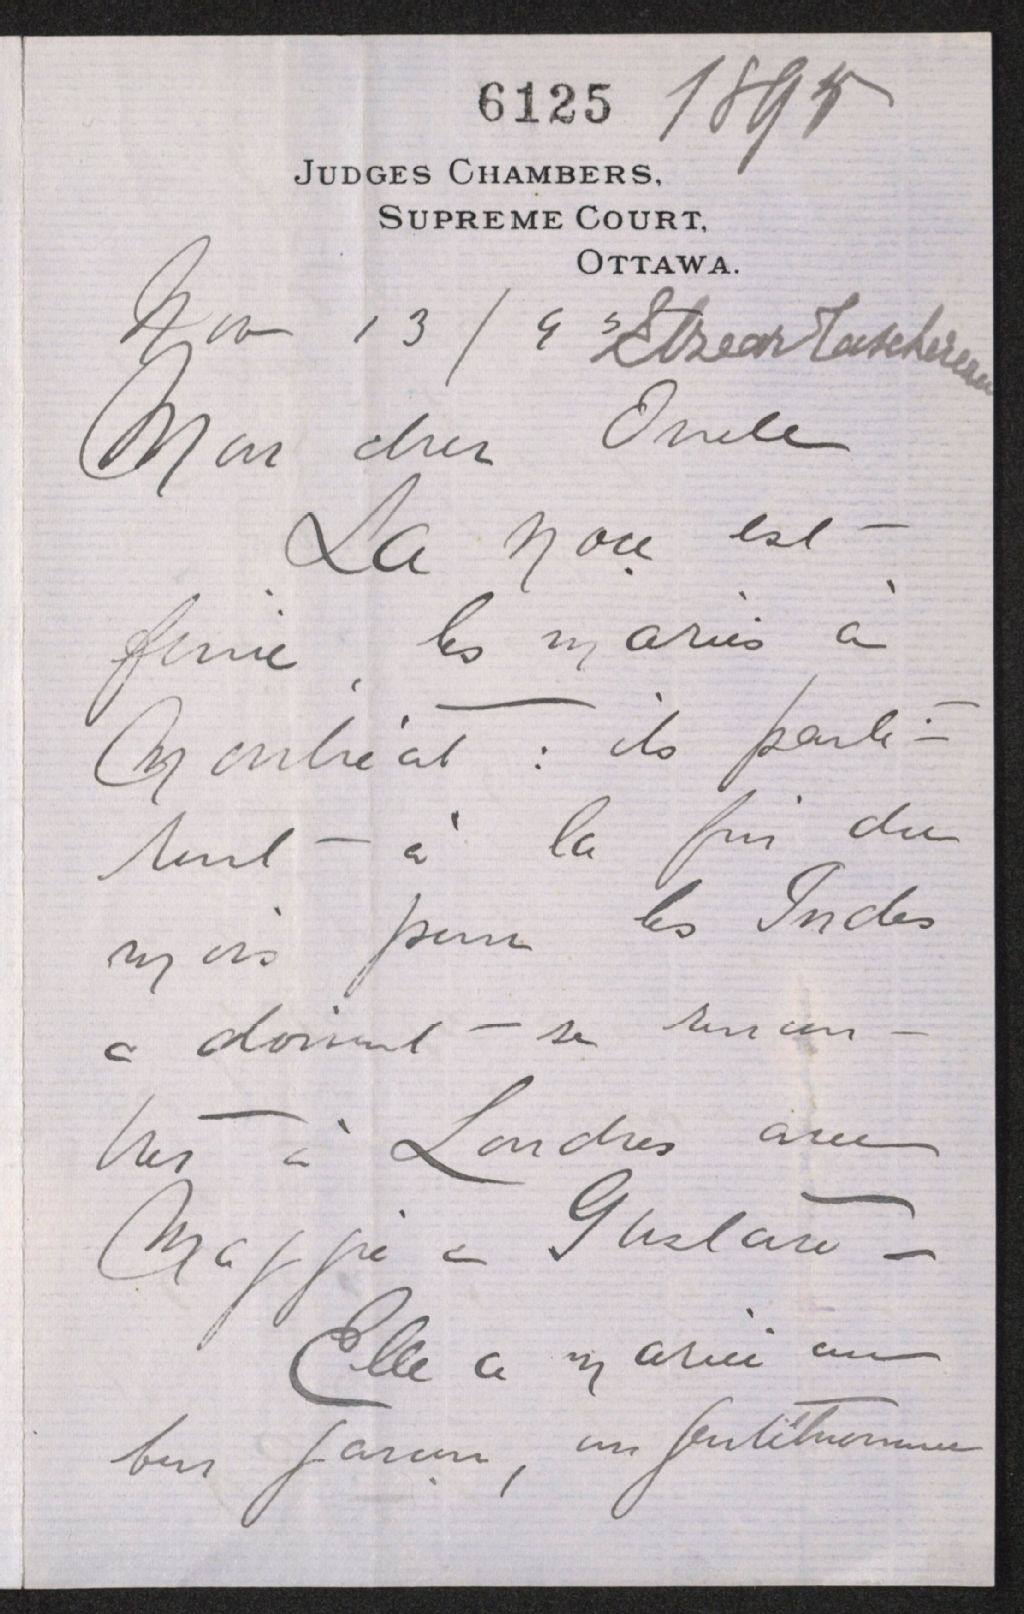 6125 1895
JUDGES CHAMBERS,
SUPREME COURT,
OTTAWA.
Nov 13/95 Elzear Taschereau
Mon cher Oncle
La noce est
finie, les mariés à
Montréal : ils parti-
ront à la fin du
mois pour les Indes
& doivent se rencon-
trer à Londres avec
Maggie & Gustave -
Elle a marié un
bon garçon, un gentilhomme